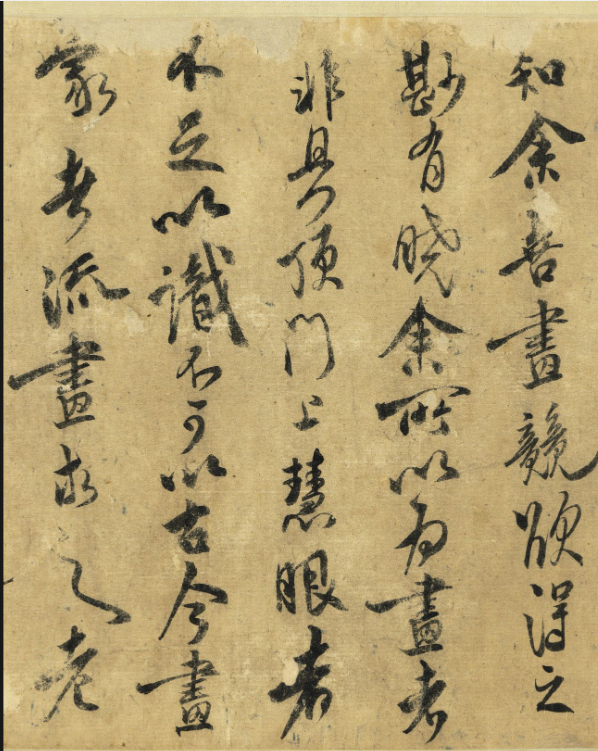 知余善畫競欲得之
尠有曉余所以為畫者
非具頂門上慧眼者
不足以識不可以古今畫
家者流畫求之老